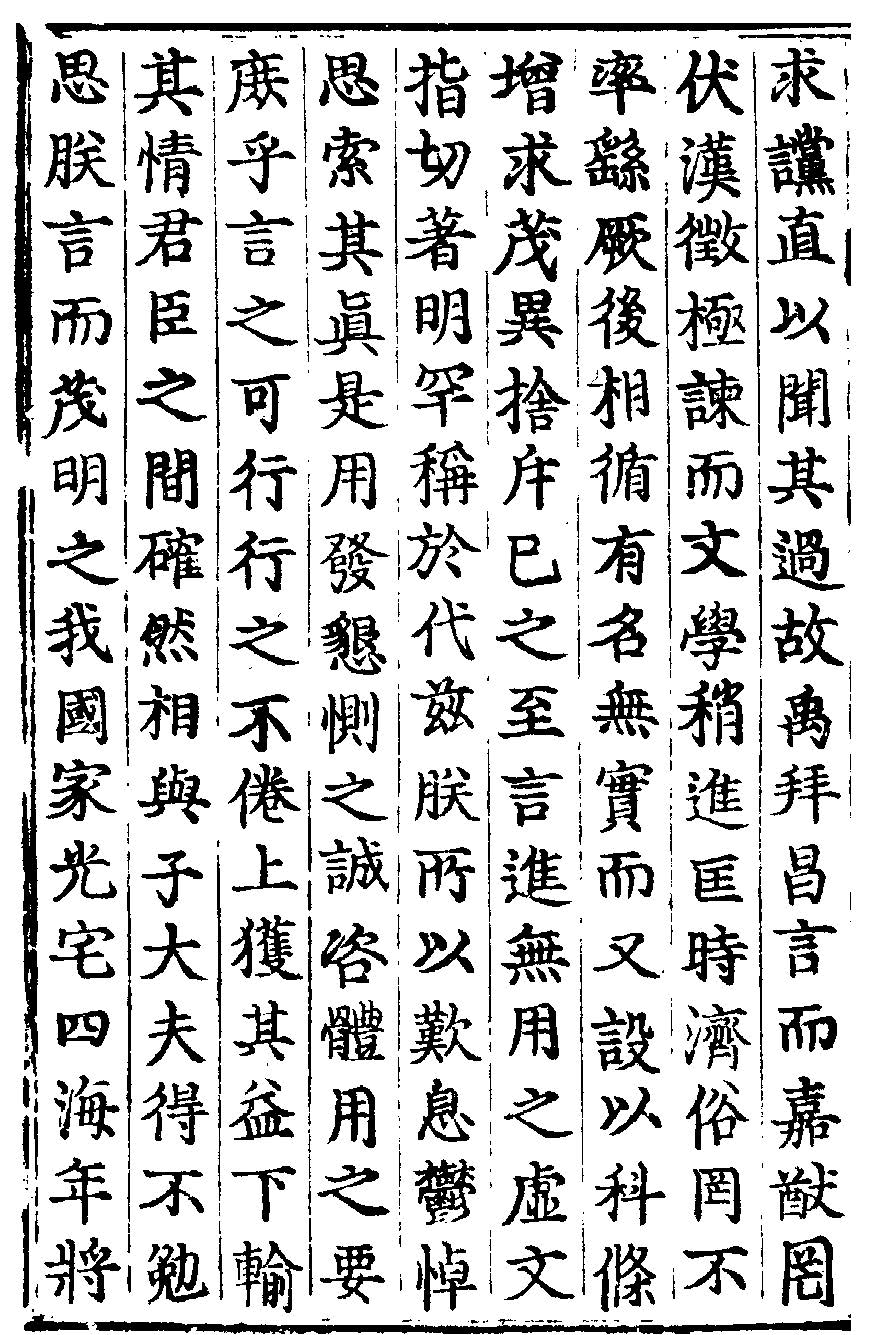 求讜直以聞其過故禹拜昌言而嘉猷罔
伏漢徵極諫而文學稍進匡時濟俗罔不
率繇厥後相循有名無實而又設以科條
增求茂異捨斥已之至言進無用之虛文
指切著明罕稱於代茲朕所以歎息鬱悼
思索其眞是用發懇惻之誠咨體用之要
庶乎言之可行行之不倦上獲其益下輸
其情君臣之間確然相與子大夫得不勉
思朕言而茂明之我國家光宅四海年將